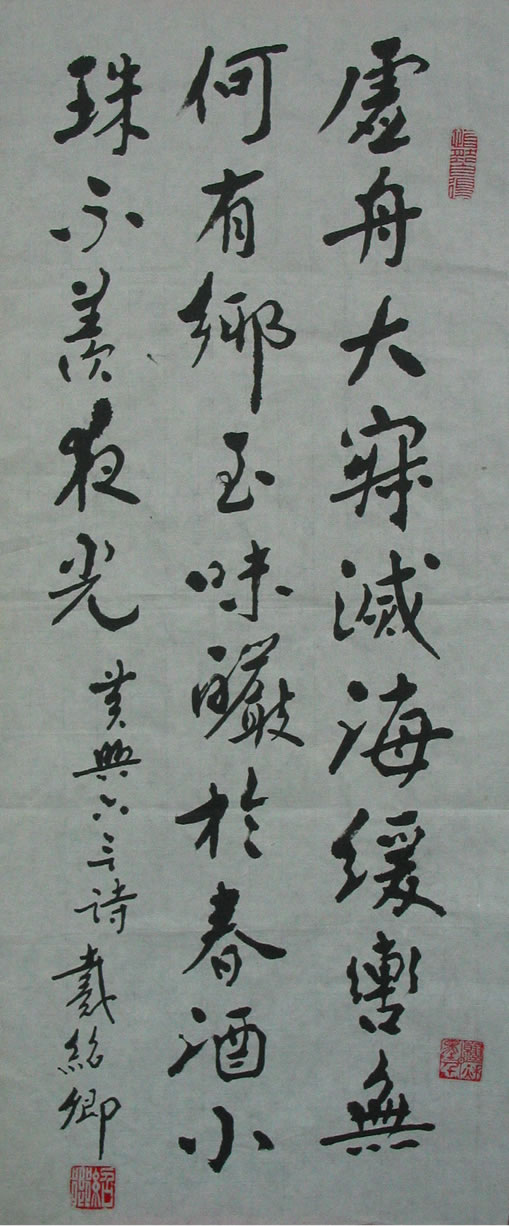 虛舟大寂滅海緩轡無
何有鄉至味釅於春酒小
珠不羨夜光
黄興六言詩
戴紹卿